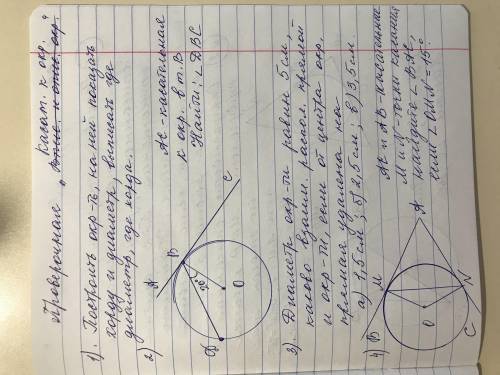 Проверочная „Касат. к окр."
1). Построить окр-ть, на ней показать
хорду и диаметр, выписать где
диаметр, где хорда.
2)
AC - касательная
к окр. в т. B
Найти: ∠DBC
A
B
C
O
D
3). Диаметр окр-ти равен 5 см, -
каково взаимн. распол. прямой
и окр-ти, если от центра окр.
прямая удалена на
а) 1,5 см; б) 2,5 см; в) 3,5 см.
4)
AC и AB - касательные
M и N - точки касания
найдите ∠BAC,
если ∠OMN = 15°
B
M
A
O
N
C